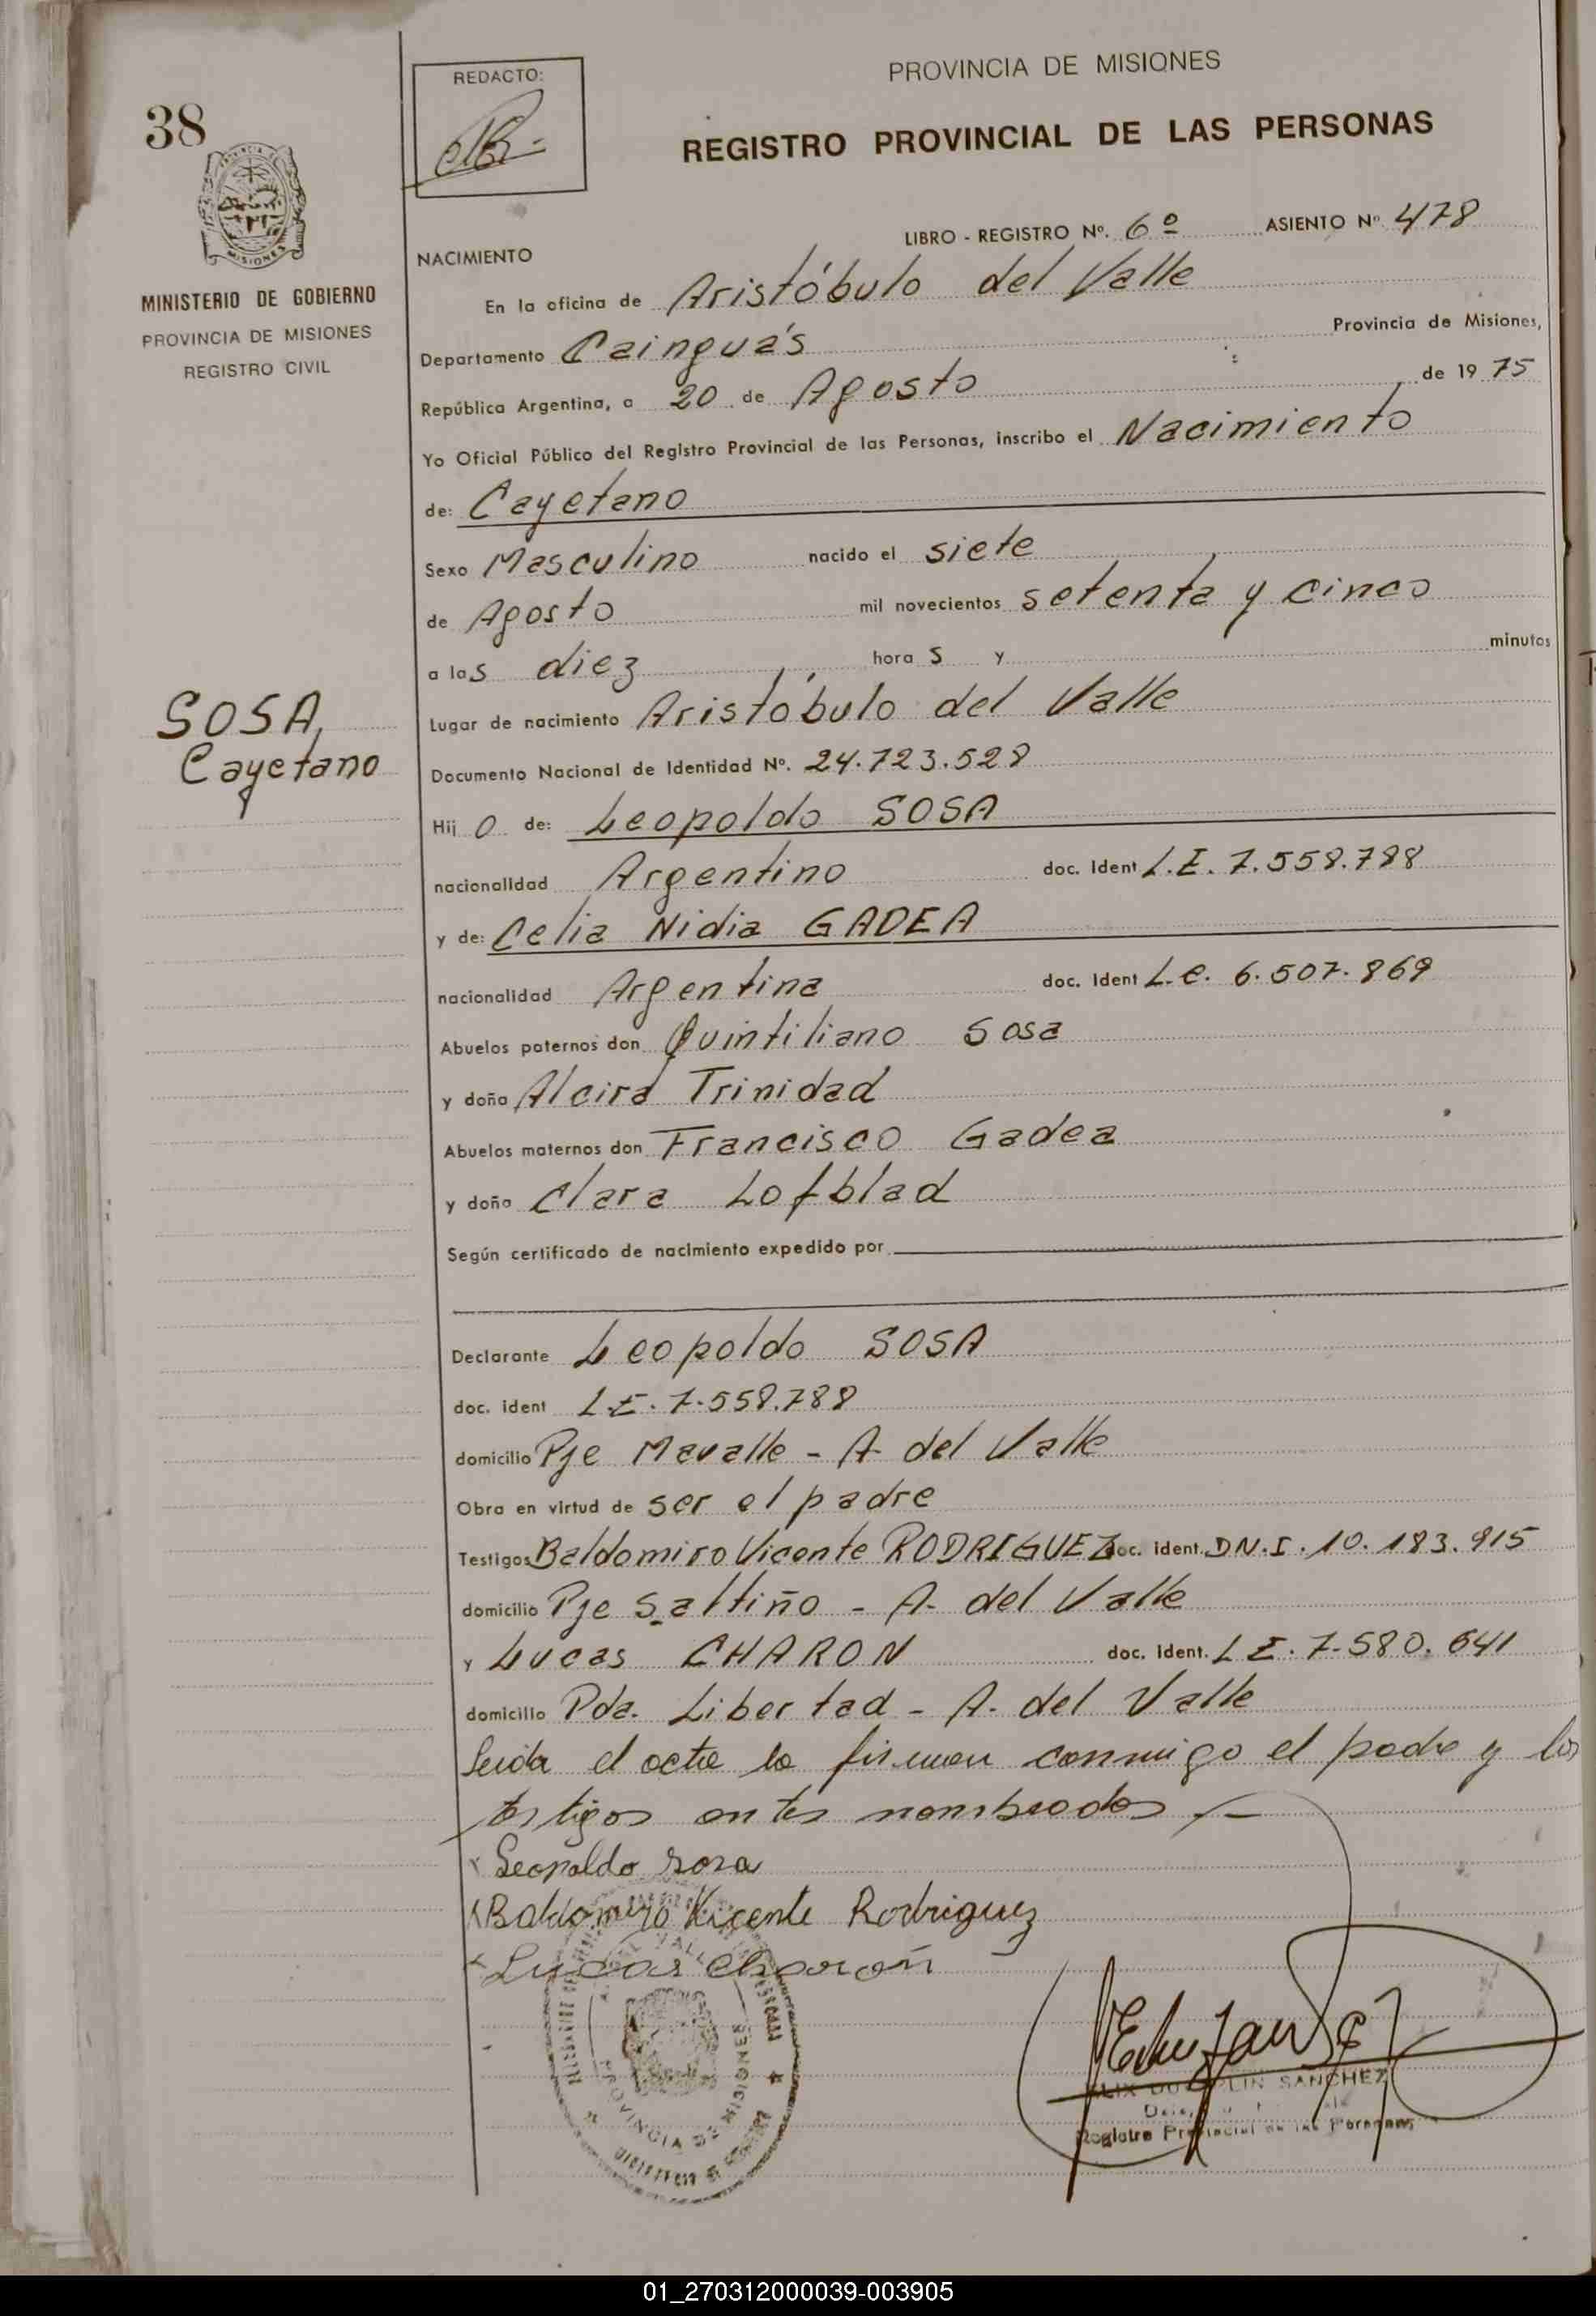 38
REDACTO:
PROVINCIA DE MISIONES
REGISTRO PROVINCIAL DE LAS PERSONAS
LIBRO - REGISTRO Nº. 6º ASIENTO Nº 478
MISIONES
MINISTERIO DE GOBIERNO
PROVINCIA DE MISIONES
REGISTRO CIVIL
NACIMIENTO
En la oficina de Aristóbulo del Valle
Departamento Cainguás Provincia de Misiones,
República Argentina, a 20 de Agosto de 1975
Yo Oficial Público del Registro Provincial de las Personas, inscribo el Nacimiento
de: Cayetano
Sexo Masculino nacido el siete
de Agosto mil novecientos setenta y cinco
a las diez horas y minutos
SOSA,
Cayetano
Lugar de nacimiento Aristóbulo del Valle
Documento Nacional de Identidad Nº. 24.723.528
Hijo de: Leopoldo SOSA
nacionalidad Argentino doc. Ident L.E. 7.558.788
y de: Celia Nidia GADEA
nacionalidad Argentina doc. Ident L.C. 6.507.869
Abuelos paternos don Quintiliano Sosa
y doña Alcira Trinidad
Abuelos maternos don Francisco Gadea
y doña Clara Lofblad
Según certificado de nacimiento expedido por
Declarante Leopoldo SOSA
doc. ident L.E. 7.558.788
domicilio Pje Mavalle - A- del Valle
Obra en virtud de ser el padre
Testigos Baldomiro Vicente RODRIGUEZ doc. ident. DN.I. 10.183.915
domicilio Pje Saltiño - A- del Valle
y Lucas CHARON doc. Ident. L E. 7.580.641
domicilio Pda. Libertad - A. del Valle
Leida el acta la firman conmigo el padre y los
testigos antes nombrados
Leopoldo Sosa
Baldomiro Vicente Rodriguez
Lucas Charon
PROVINCIA DE MISIONES
SANCHEZ
Registro Provincial de las Personas
01_270312000039-003905